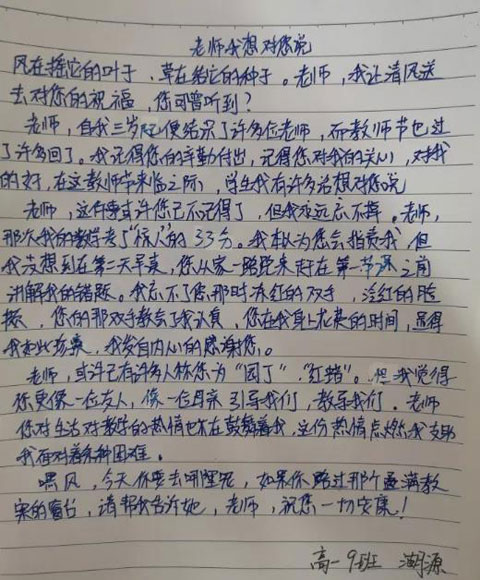 老师我想对您说
风在摇它的叶子,草在结它的种子。老师,我让清风送
去对您的祝福,您可曾听到?
老师,自我三岁起便结识了许多位老师,而教师节也过
了许多回了。我记得您的辛勤付出,记得您对我的关心,对我
的好,在这教师节来临之际,学生我有许多话想对您说
老师,这件事或许您已不记得了,但我永远忘不掉。老师,
那次我的数学考了"惊人"的33分。我本以为您会指责我,但
我没想到在第二天早晨,您从家一路跑来赶在第一节课之前
讲解我的错题。我忘不了您那时冻红的双手,泛红的脸
颊,您的那双手教会了我认真,您在我身上花费的时间,显得
我如此珍贵,我发自内心的感谢您。
老师,或许已有许多人称您为"园丁"."红烛"。但我觉得
您更像一位友人,像一位母亲引导我们,教导我们。老师
您对生活对教学的热情也在鼓舞着我,这份热情点燃我支助
我面对着各种困难。
嘿风,今天你要去哪里玩,如果你路过那个通满教
案的窗台,请帮我告诉她,老师,祝您一切安康!
高一9班 溯源